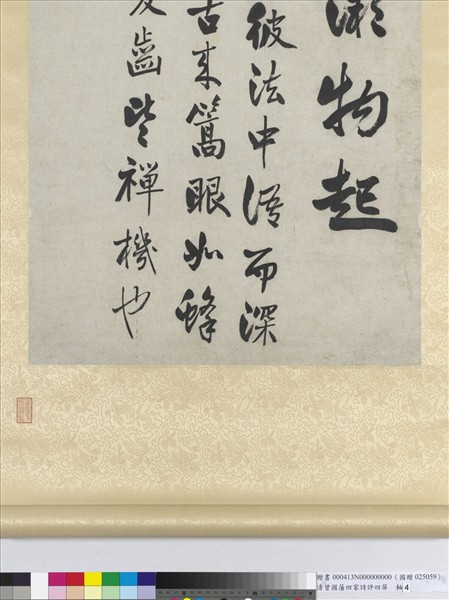 物起
彼法中語而深
古來篙眼如蜂
齒皆禪機也
贈書 000413N000000000 (國贈 025059)
清曾國藩四家詩評四屏 軸4